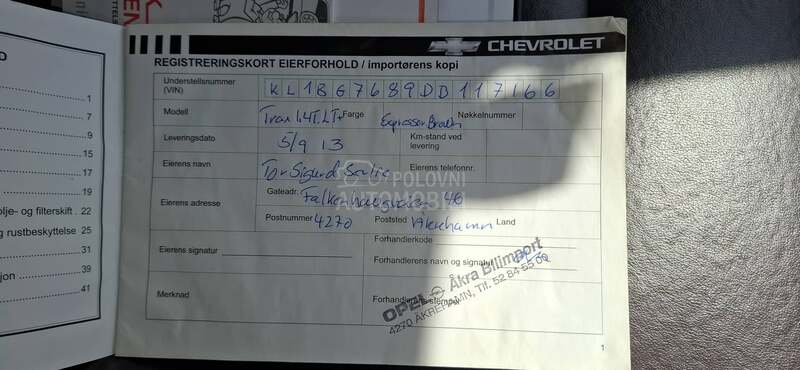 CHEVROLET
REGISTRERINGSKORT EIERFORHOLD / importørens kopi
Understellsnummer
(VIN)
Modell
Trax 1.4T LT+
Farge
Espresso
Nøkkelnummer
Leveringsdato
5/9 13
Km-stand ved
levering
Eierens navn
Tor Sigurd
Eierens telefonnr.
Eierens adresse
Gateadr.
46
Postnummer 4270
Poststed Åkrehamn
Land
Eierens signatur
Forhandlerkode
Forhandlerens navn og signatur
Merknad
Forhandlerens stempel
OPEL Åkra Bilimport
4270 ÅKREHAMN, Tlf. 52 84 85 00
1
POLOVNI
AUTOMOBILI
1
7
9
15
17
19
lje- og filterskift . 22
g rustbeskyttelse 25
31
jon 39
41